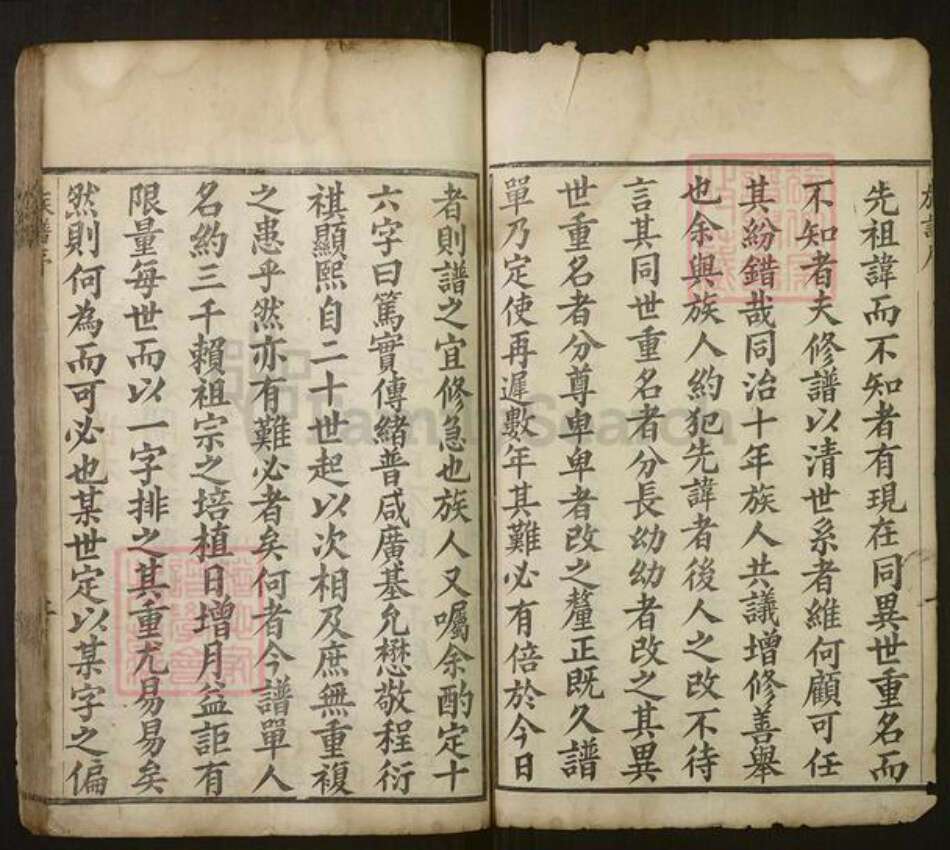 先祖諱而不知者有現在同異世重名而
不知者夫修譜以清世系者維何顧可任
其紛錯哉同治十年族人共議增修善舉
也余與族人約犯先諱者後人之改不待
言其同世重名者分長幼幼者改之其異
世重名者分尊卑卑者改之釐正既久譜
單乃定使再遲數年其難必有倍於今日
者則譜之宜修急也族人又囑余酌定十
六字曰篤實傳緒普咸廣基允懋敬程衍
祺顯熙自二十世起以次相及庶無重複
之患乎然亦有難必者矣何者今譜單人
名約三千賴祖宗之培植日增月益詎有
限量每世而以一字排之其重尤易易矣
然則何為而可必也某世定以某字之偏
族譜序